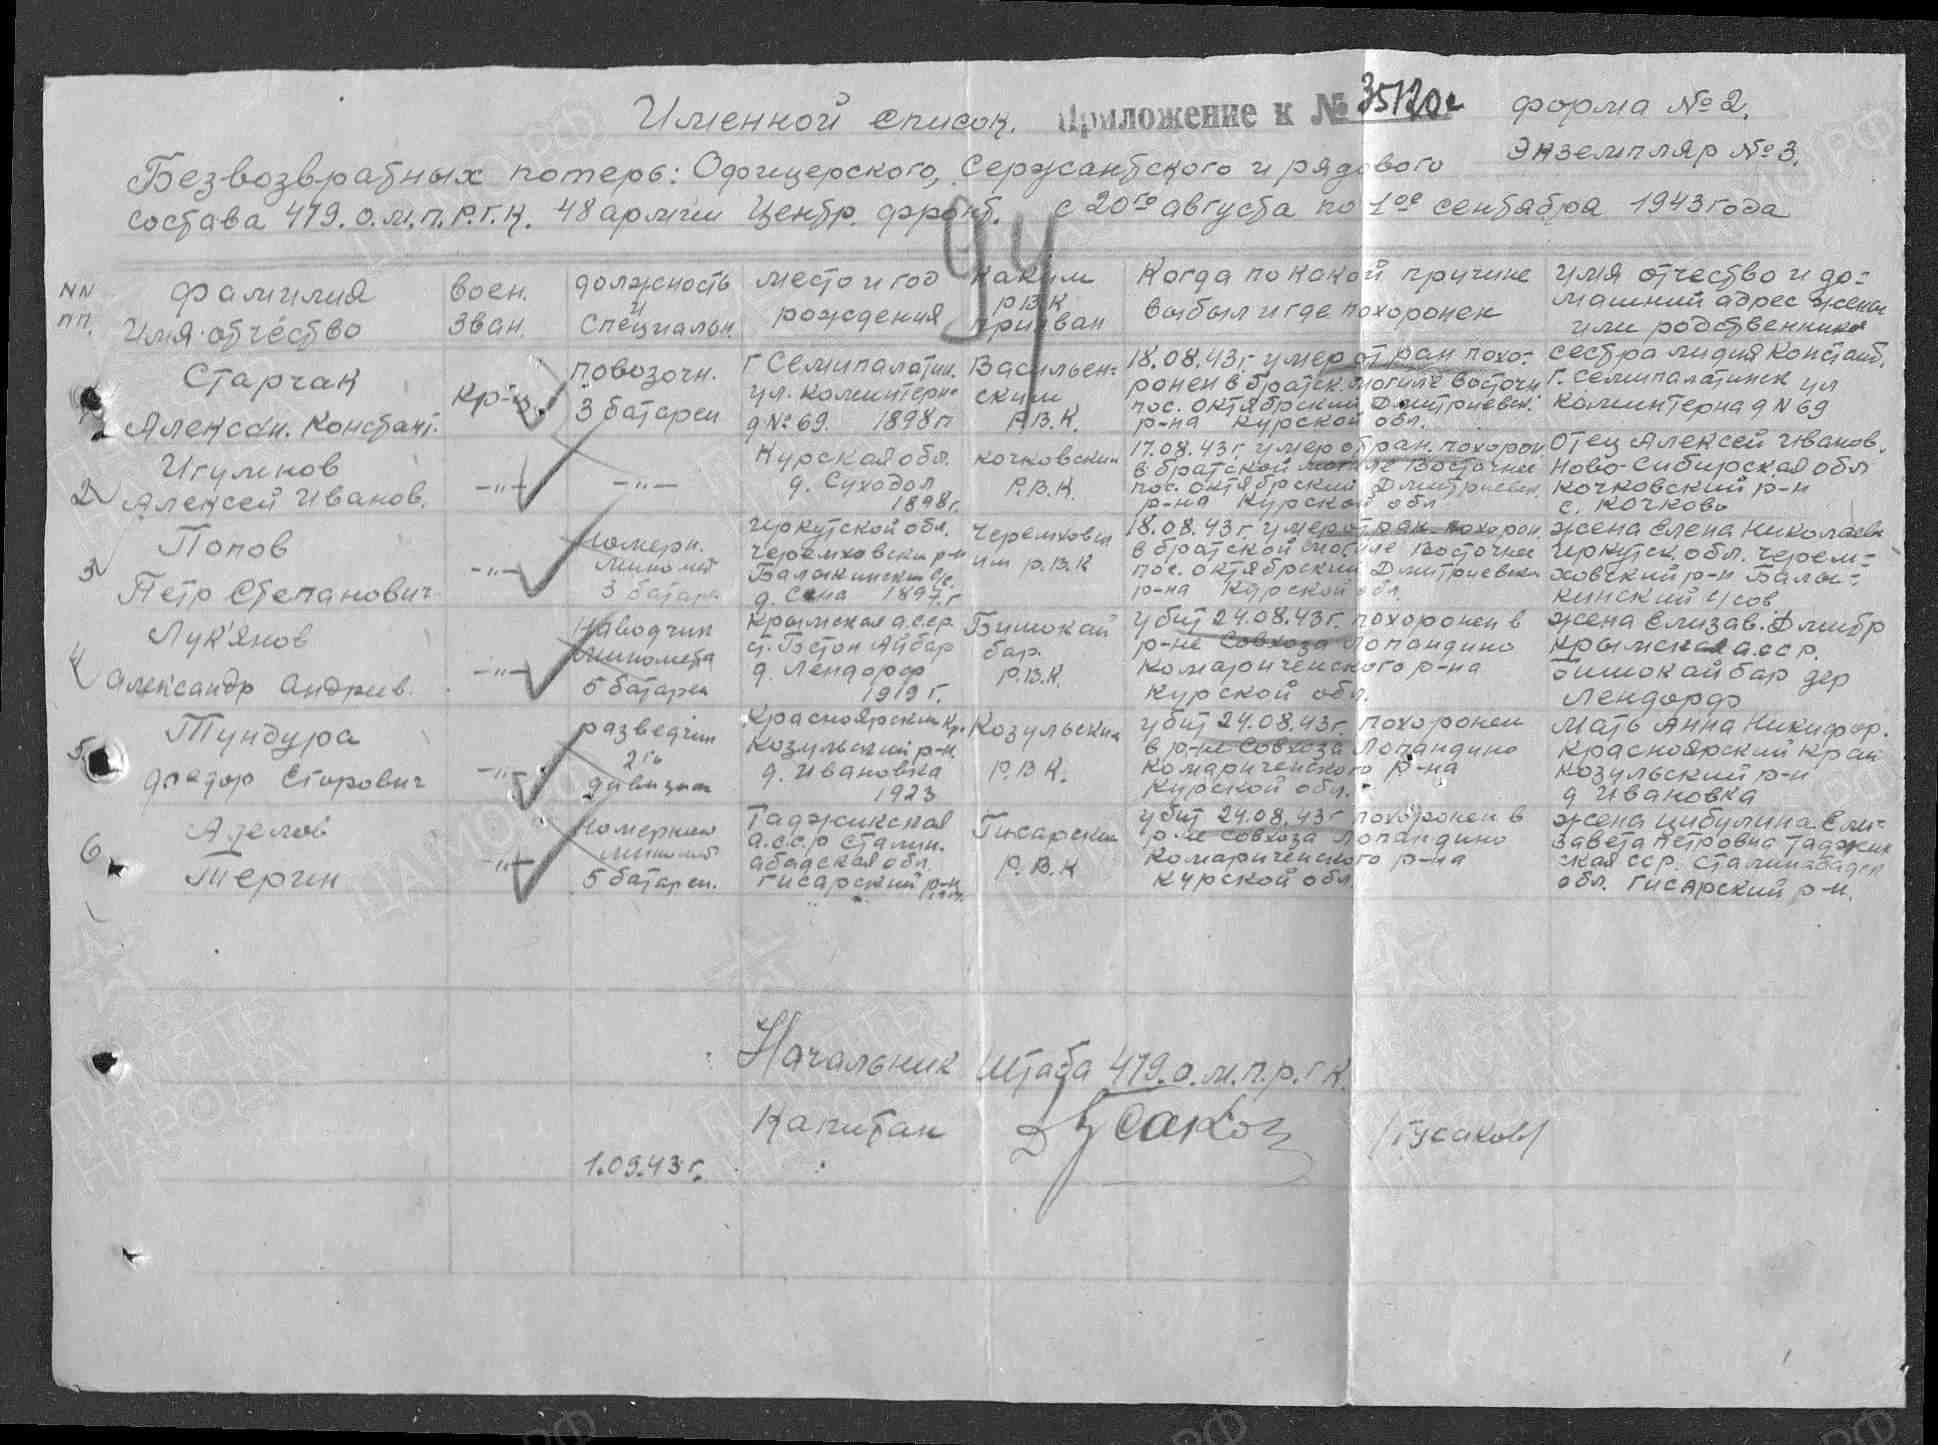 Именной список. Приложение к № 35120с форма № 2.
Экземпляр № 3.
Безвозвратных потерь: Офицерского, Сержантского и рядового
состава 479. о.м.п. Р.Г.К. 48 армии Центр. фронт. с 20го августа по 1ое сентября 1943 года
NN пп.
фамилия
Имя отчество
воен.
зван.
должность
и
специальн.
место и год
рождения
каким
Р.В.К
призван
Когда по какой причине
выбыл и где похоронен
имя отчество и до-
машний адрес жены
или родственника
Старчак
Алексан. Констант.
кр-ц
повозочн.
3 батареи
г Семипалатин.
ул. Коминтерн
д № 69. 1898 г
Васильев-
ским
Р.В.К.
18.08.43 г. умер от ран похо-
ронен в братск. могиле восточн
пос. Октябрский Дмитриевск.
р-на Курской обл.
сестра лидия Констант.
г. Семипалатинск ул
Коминтерна д N 69
2
Игумнов
Алексей Иванов.
-"-
-"-
Курская обл.
д. Суходол
1898 г.
кочковским
Р.В.К.
17.08.43 г. умер от ран. похорон
в братской могиле Восточнее
пос. Октябрский Дмитриевск.
р-на Курской обл
отец Алексей Иванов.
Ново-Сибирская обл
Кочковский р-н
с. Кочково
3
Попов
Петр Степанович
-"-
номерн.
миномет
3 батареи
Иркутской обл.
Черемховски р-н
д. 1897 г
Черемховск
им Р.В.К
18.08.43 г умер от ран. похорон
в братской могиле Восточнее
пос. Октябрский Дмитриевск
р-на Курской обл.
жена Елена Николаевн
Иркутск. обл. Черем-
ховский р-н Балы-
кинский
4
Лук'янов
Александр Андреев.
-"-
наводчик
миномета
5 батареи
Крымская а.сср.
д. Лендорф
1919 г.
Биюкай
бар.
Р.В.К.
убит 24.08.43 г. похоронен в
р-не Совхоза Лопандино
комариченского р-на
Курской обл.
жена Елизав. Дмитр
Крымская а.сср.
Биюкайбар дер
Лендорф
5.
Тундура
фёдор Егорович
-"-
разведчик
2го
дивизион
Красноярский кр.
Козульский р-н.
д. Ивановка
1923
Козульским
Р.В.К.
убит 24.08.43 г. похоронен
в р-не Совхоза Лопандино
комариченского р-на
Курской обл.
Мать Анна Никифор.
Красноярский край
Козульский р-н
д Ивановка
6
Терчин
-"-
номерной
миномет
5 батареи.
Таджикская
а.с.с.р Сталин.
абадская обл.
гисарский р-н
Гисарским
Р.В.К
убит 24.08.43 г похоронен в
р-не Совхоза Лопандино
Комариченского р-на
курской обл
жена Цибулина Ели-
завета Петровна Таджик
ская сср. Сталинабадск
обл. Гисарский р-н.
Начальник Штаба 479. о.м.п.р.г к.
Капитан Гусаков /Гусаков/
1.09.43 г.
ПАМЯТЬ НАРОДА
ЦАМО РФ